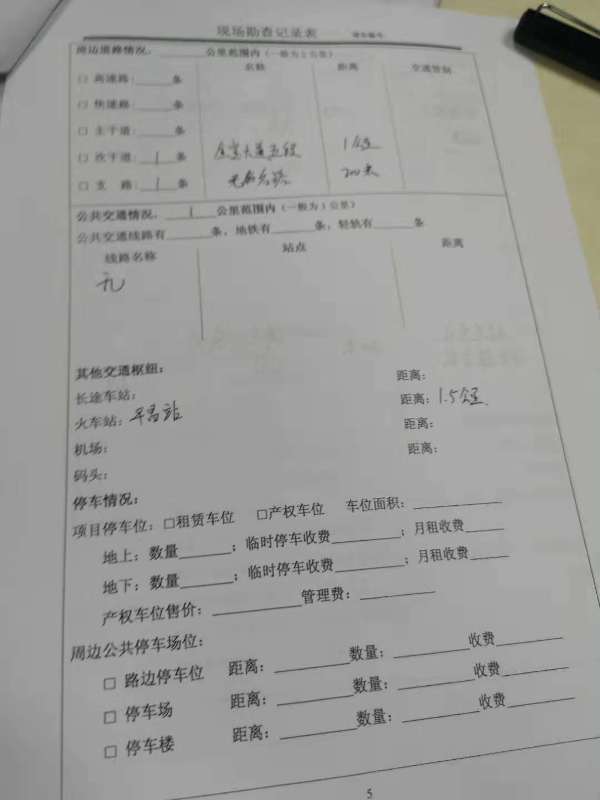 现场勘查记录表
周边道路情况：______公里范围内（一般为1公里）
名称 距离 交通管制
□ 高速路：______条
□ 快速路：______条
□ 主干道：______条
□ 次干道：1条 大道五段 1公里
□ 支 路：1条 无名路 200米
公共交通情况，1公里范围内（一般为1公里）
公共交通线路有______条，地铁有______条，轻轨有______条
线路名称 站点 距离
无
其他交通枢纽：
长途车站： 距离：
火车站：平昌站 距离：1.5公里
机场： 距离：
码头： 距离：
停车情况：
项目停车位：□租赁车位 □产权车位 车位面积：______
地上：数量______；临时停车收费______；月租收费______
地下：数量______；临时停车收费______；月租收费______
产权车位售价：______管理费：______
周边公共停车场位：
□ 路边停车位 距离：______数量：______收费______
□ 停车场 距离：______数量：______收费______
□ 停车楼 距离：______数量：______收费______
5